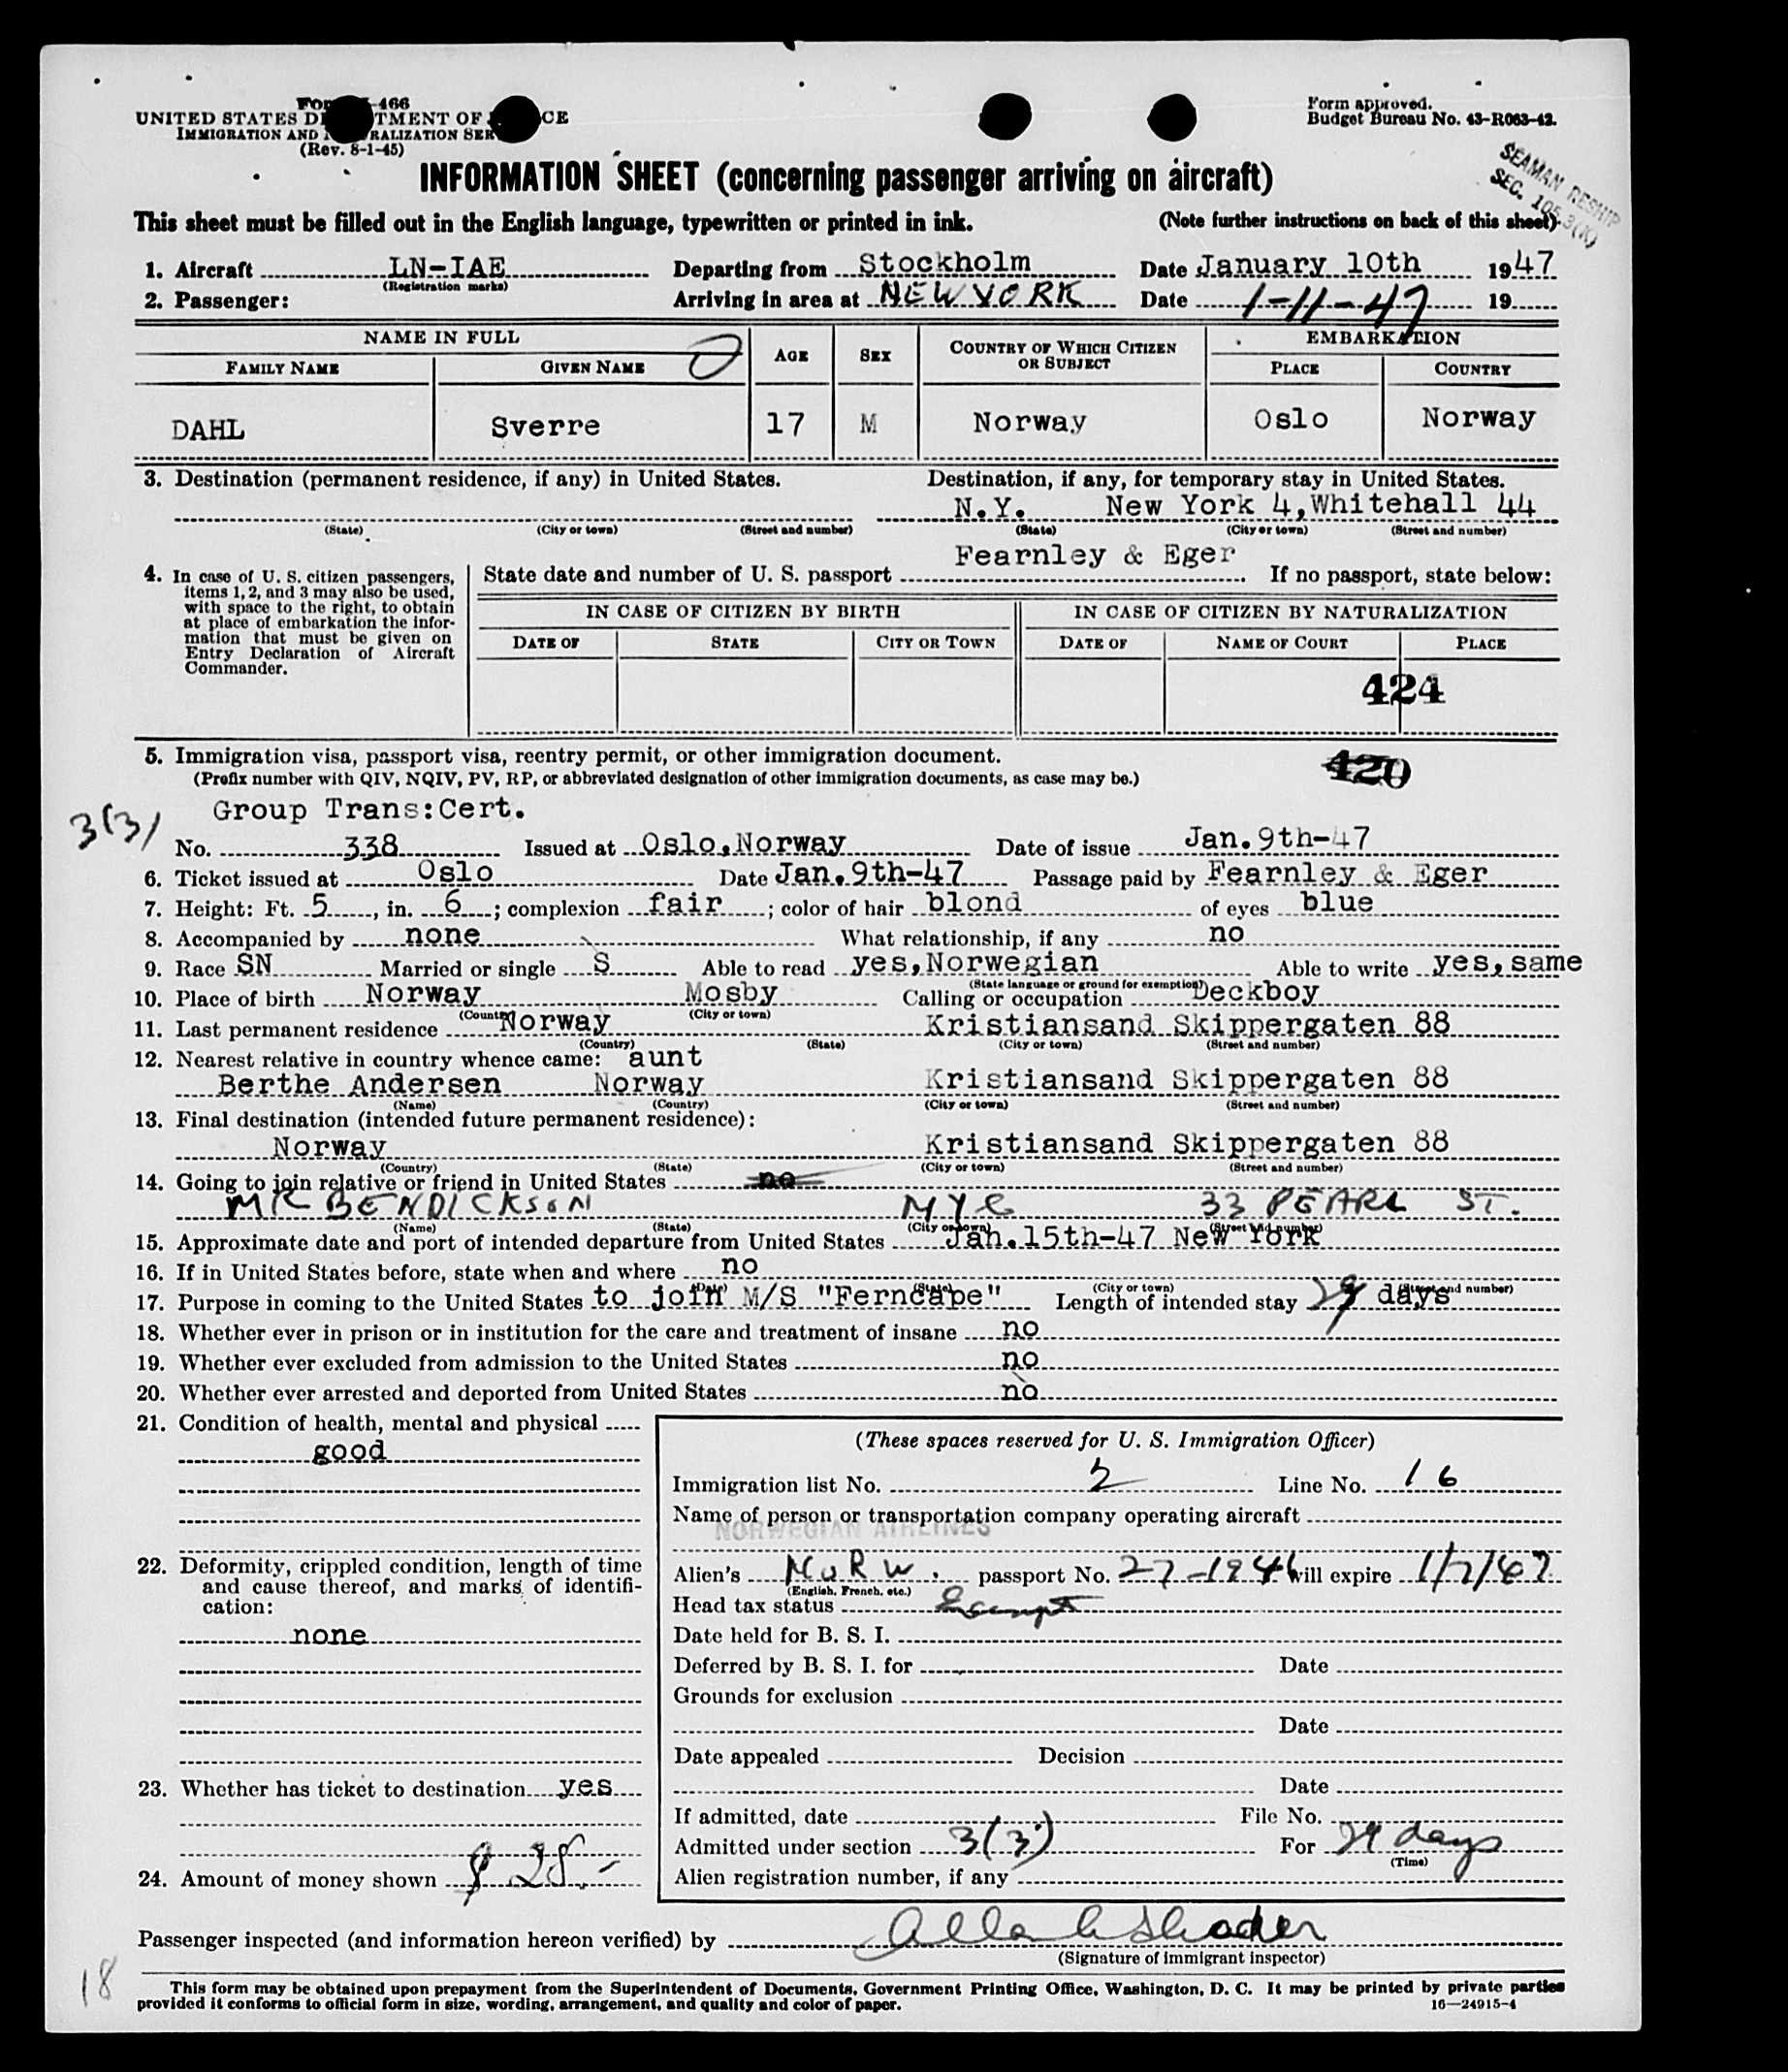 Form I-466
UNITED STATES DEPARTMENT OF JUSTICE
IMMIGRATION AND NATURALIZATION SERVICE
(Rev. 8-1-45)
Form approved.
Budget Bureau No. 43-R063-42.
SEAMAN RESHIP
SEC. 105.3(K)
INFORMATION SHEET (concerning passenger arriving on aircraft)
This sheet must be filled out in the English language, typewritten or printed in ink. (Note further instructions on back of this sheet)
1. Aircraft LN-IAE Departing from Stockholm Date January 10th 1947
(Registration marks)
2. Passenger: Arriving in area at NEW YORK Date 1-11-47 19
NAME IN FULL AGE SEX COUNTRY OF WHICH CITIZEN OR SUBJECT EMBARKATION
FAMILY NAME GIVEN NAME PLACE COUNTRY
DAHL Sverre 17 M Norway Oslo Norway
3. Destination (permanent residence, if any) in United States. Destination, if any, for temporary stay in United States.
N.Y. New York 4, Whitehall 44
(State) (City or town) (Street and number) (State) (City or town) (Street and number)
Fearnley & Eger
4. In case of U. S. citizen passengers, items 1, 2, and 3 may also be used, with space to the right, to obtain at place of embarkation the information that must be given on Entry Declaration of Aircraft Commander.
State date and number of U. S. passport . If no passport, state below:
IN CASE OF CITIZEN BY BIRTH IN CASE OF CITIZEN BY NATURALIZATION
DATE OF STATE CITY OR TOWN DATE OF NAME OF COURT PLACE
424
5. Immigration visa, passport visa, reentry permit, or other immigration document.
420
(Prefix number with QIV, NQIV, PV, RP, or abbreviated designation of other immigration documents, as case may be.)
3(3)
Group Trans:Cert.
No. 338 Issued at Oslo,Norway Date of issue Jan.9th-47
6. Ticket issued at Oslo Date Jan.9th-47 Passage paid by Fearnley & Eger
7. Height: Ft. 5, in. 6; complexion fair; color of hair blond of eyes blue
8. Accompanied by none What relationship, if any no
9. Race SN Married or single S Able to read yes,Norwegian Able to write yes,same
(State language or ground for exemption)
10. Place of birth Norway Mosby Calling or occupation Deckboy
(Country) (City or town)
11. Last permanent residence Norway Kristiansand Skippergaten 88
(Country) (State) (City or town) (Street and number)
12. Nearest relative in country whence came: aunt
Berthe Andersen Norway Kristiansand Skippergaten 88
(Name) (Country) (City or town) (Street and number)
13. Final destination (intended future permanent residence):
Norway Kristiansand Skippergaten 88
(Country) (State) (City or town) (Street and number)
14. Going to join relative or friend in United States no
MR BENDICKSON NYC 33 PEARL ST.
(Name) (State) (City or town) (Street and number)
15. Approximate date and port of intended departure from United States Jan.15th-47 New York
16. If in United States before, state when and where no
(Date) (State) (City or town) (Street and number)
17. Purpose in coming to the United States to join M/S "Ferncape" Length of intended stay 29 days
18. Whether ever in prison or in institution for the care and treatment of insane no
19. Whether ever excluded from admission to the United States no
20. Whether ever arrested and deported from United States no
21. Condition of health, mental and physical
good
22. Deformity, crippled condition, length of time and cause thereof, and marks of identification:
none
23. Whether has ticket to destination yes
24. Amount of money shown $ 28.-
(These spaces reserved for U. S. Immigration Officer)
Immigration list No. 2 Line No. 16
Name of person or transportation company operating aircraft
NORWEGIAN AIRLINES
Alien's NORW. passport No. 27-1946 will expire 1/7/67
(English, French, etc.)
Head tax status Exempt
Date held for B. S. I.
Deferred by B. S. I. for Date
Grounds for exclusion
Date
Date appealed Decision
Date
If admitted, date File No.
Admitted under section 3(3) For 29 days
(Time)
Alien registration number, if any
Passenger inspected (and information hereon verified) by
(Signature of immigrant inspector)
18
This form may be obtained upon prepayment from the Superintendent of Documents, Government Printing Office, Washington, D. C. It may be printed by private parties
provided it conforms to official form in size, wording, arrangement, and quality and color of paper. 16—24915-4